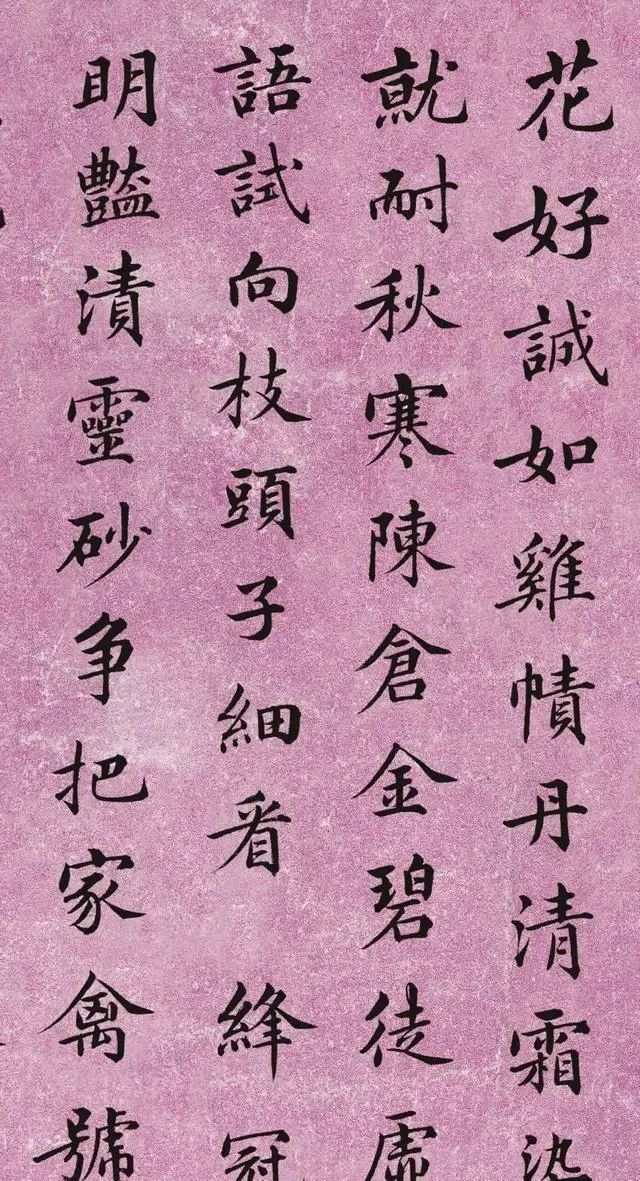 花好誠如雞幘丹清霜染
就耐秋寒陳倉金碧徒虛
語試向枝頭子細看 絳冠
眀豔漬靈砂争把家禽號